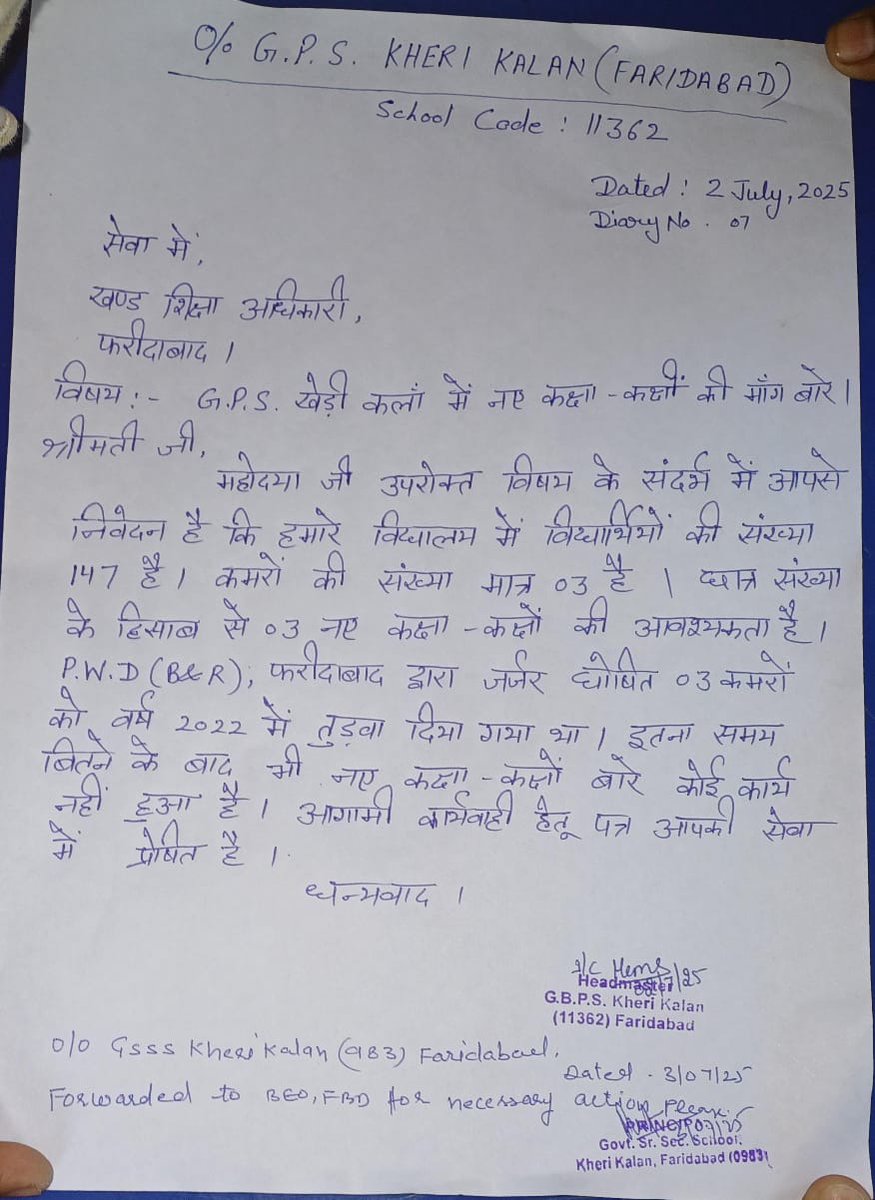 O/o G.P.S. KHERI KALAN (FARIDABAD)
School Code : 11362
Dated : 2 July, 2025
Diary No. 07
सेवा में,
खण्ड शिक्षा अधिकारी,
फरीदाबाद ।
विषय :- G.P.S. खेड़ी कलाँ में नए कक्षा-कक्षों की माँग बारे ।
श्रीमती जी,
महोदया जी उपरोक्त विषय के संदर्भ में आपसे
निवेदन है कि हमारे विद्यालय में विद्यार्थियों की संख्या
147 है । कमरों की संख्या मात्र 03 है । छात्र संख्या
के हिसाब से 03 नए कक्षा-कक्षों की आवश्यकता है ।
P.W.D (B&R), फरीदाबाद द्वारा जर्जर घोषित 03 कमरों
को वर्ष 2022 में तुड़वा दिया गया था । इतना समय
बितने के बाद भी नए कक्षा-कक्षों बारे कोई कार्य
नहीं हुआ है । आगामी कार्यवाही हेतू पत्र आपकी सेवा
में प्रेषित है ।
धन्यवाद ।
I/C
Headmaster
G.B.P.S. Kheri Kalan
(11362) Faridabad
O/o GSSS Kheri Kalan (983) Faridabad.
Dated . 3/07/25
Forwarded to BEO, FBD for necessary action please.
Govt. Sr. Sec. School.
Kheri Kalan, Faridabad (0983)